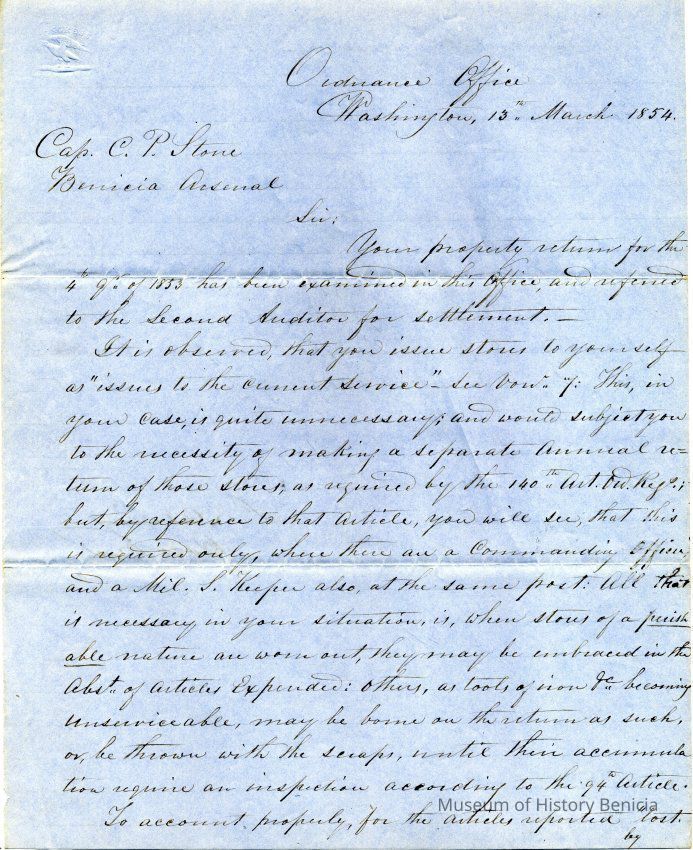 Ordnance Office
Washington, 13th March 1854.
Cap. C. P. Stone
Benicia Arsenal
Sir:
Your property return for the
4th qr. of 1853 has been examined in this Office, and referred
to the Second Auditor for settlement. —
It is observed, that you issue stores to yourself
as "issues to the current service" - see Vour. 7: This, in
your case, is quite unnecessary; and would subject you
to the necessity of making a separate Annual re=
turn of those stores, as required by the 140th Art. Od. Regs.;
but, by reference to that Article, you will see, that this
is required only, where there are a Commanding Officer
and a Mil. S. Keeper also, at the same post. All that
is necessary in your situation, is, when stores of a perish
able nature are worn out, they may be embraced in the
Abst. of Articles Expended: others, as tools of iron &c. becoming
unserviceable, may be borne on the return as such,
or, be thrown with the scraps, until their accumula
tion require an inspection according to the 94th Article.
To account properly, for the articles reported lost
by
Museum of History Benicia